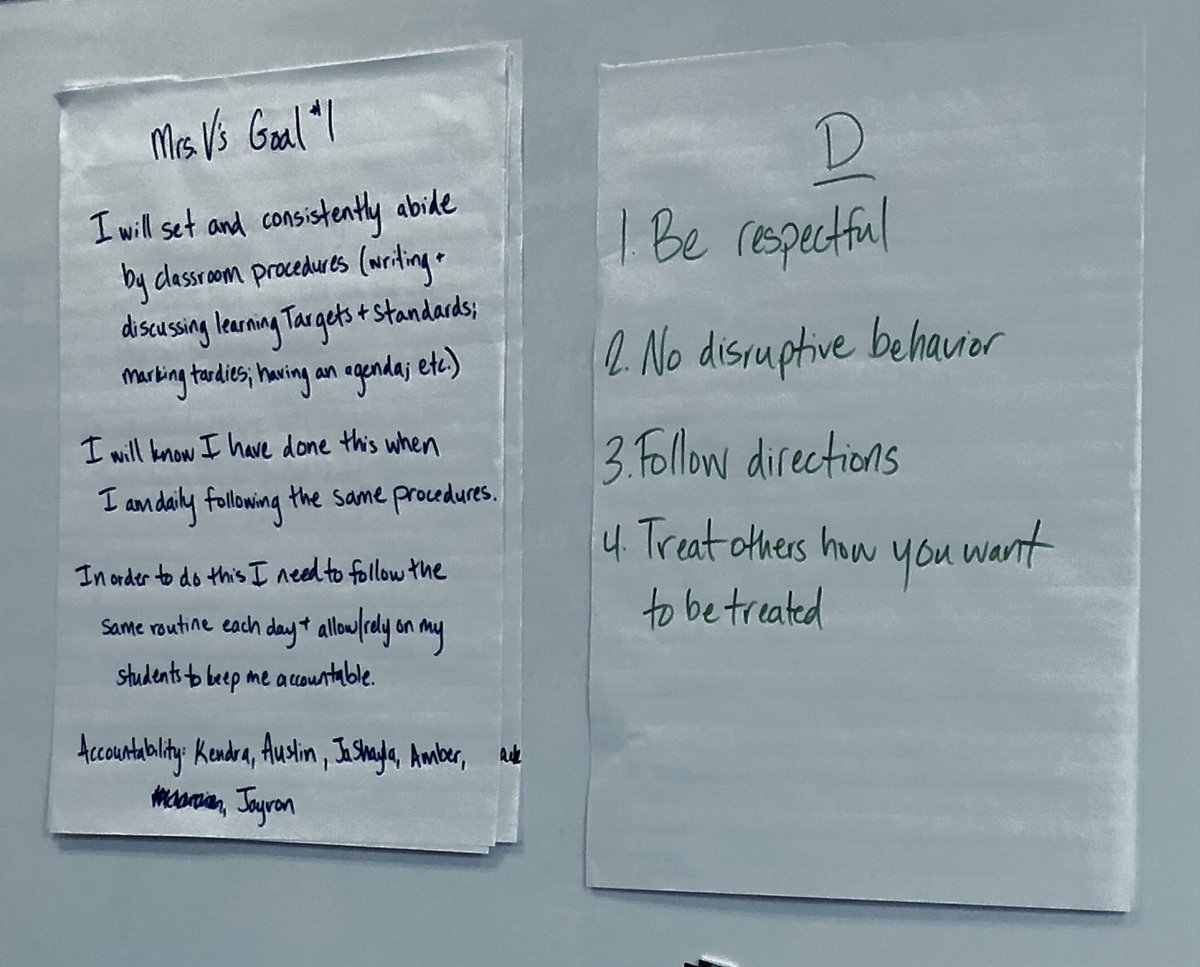 Mrs. V's Goal #1
I will set and consistently abide
by classroom procedures (writing +
discussing learning Targets + Standards;
marking tardies; having an agenda; etc.)
I will know I have done this when
I am daily following the same procedures.
In order to do this I need to follow the
same routine each day + allow/rely on my
students to keep me accountable.
Accountability: Kendra, Austin, JaShayla, Amber,
Jayron
D
1. Be respectful
2. No disruptive behavior
3. Follow directions
4. Treat others how you want
to be treated